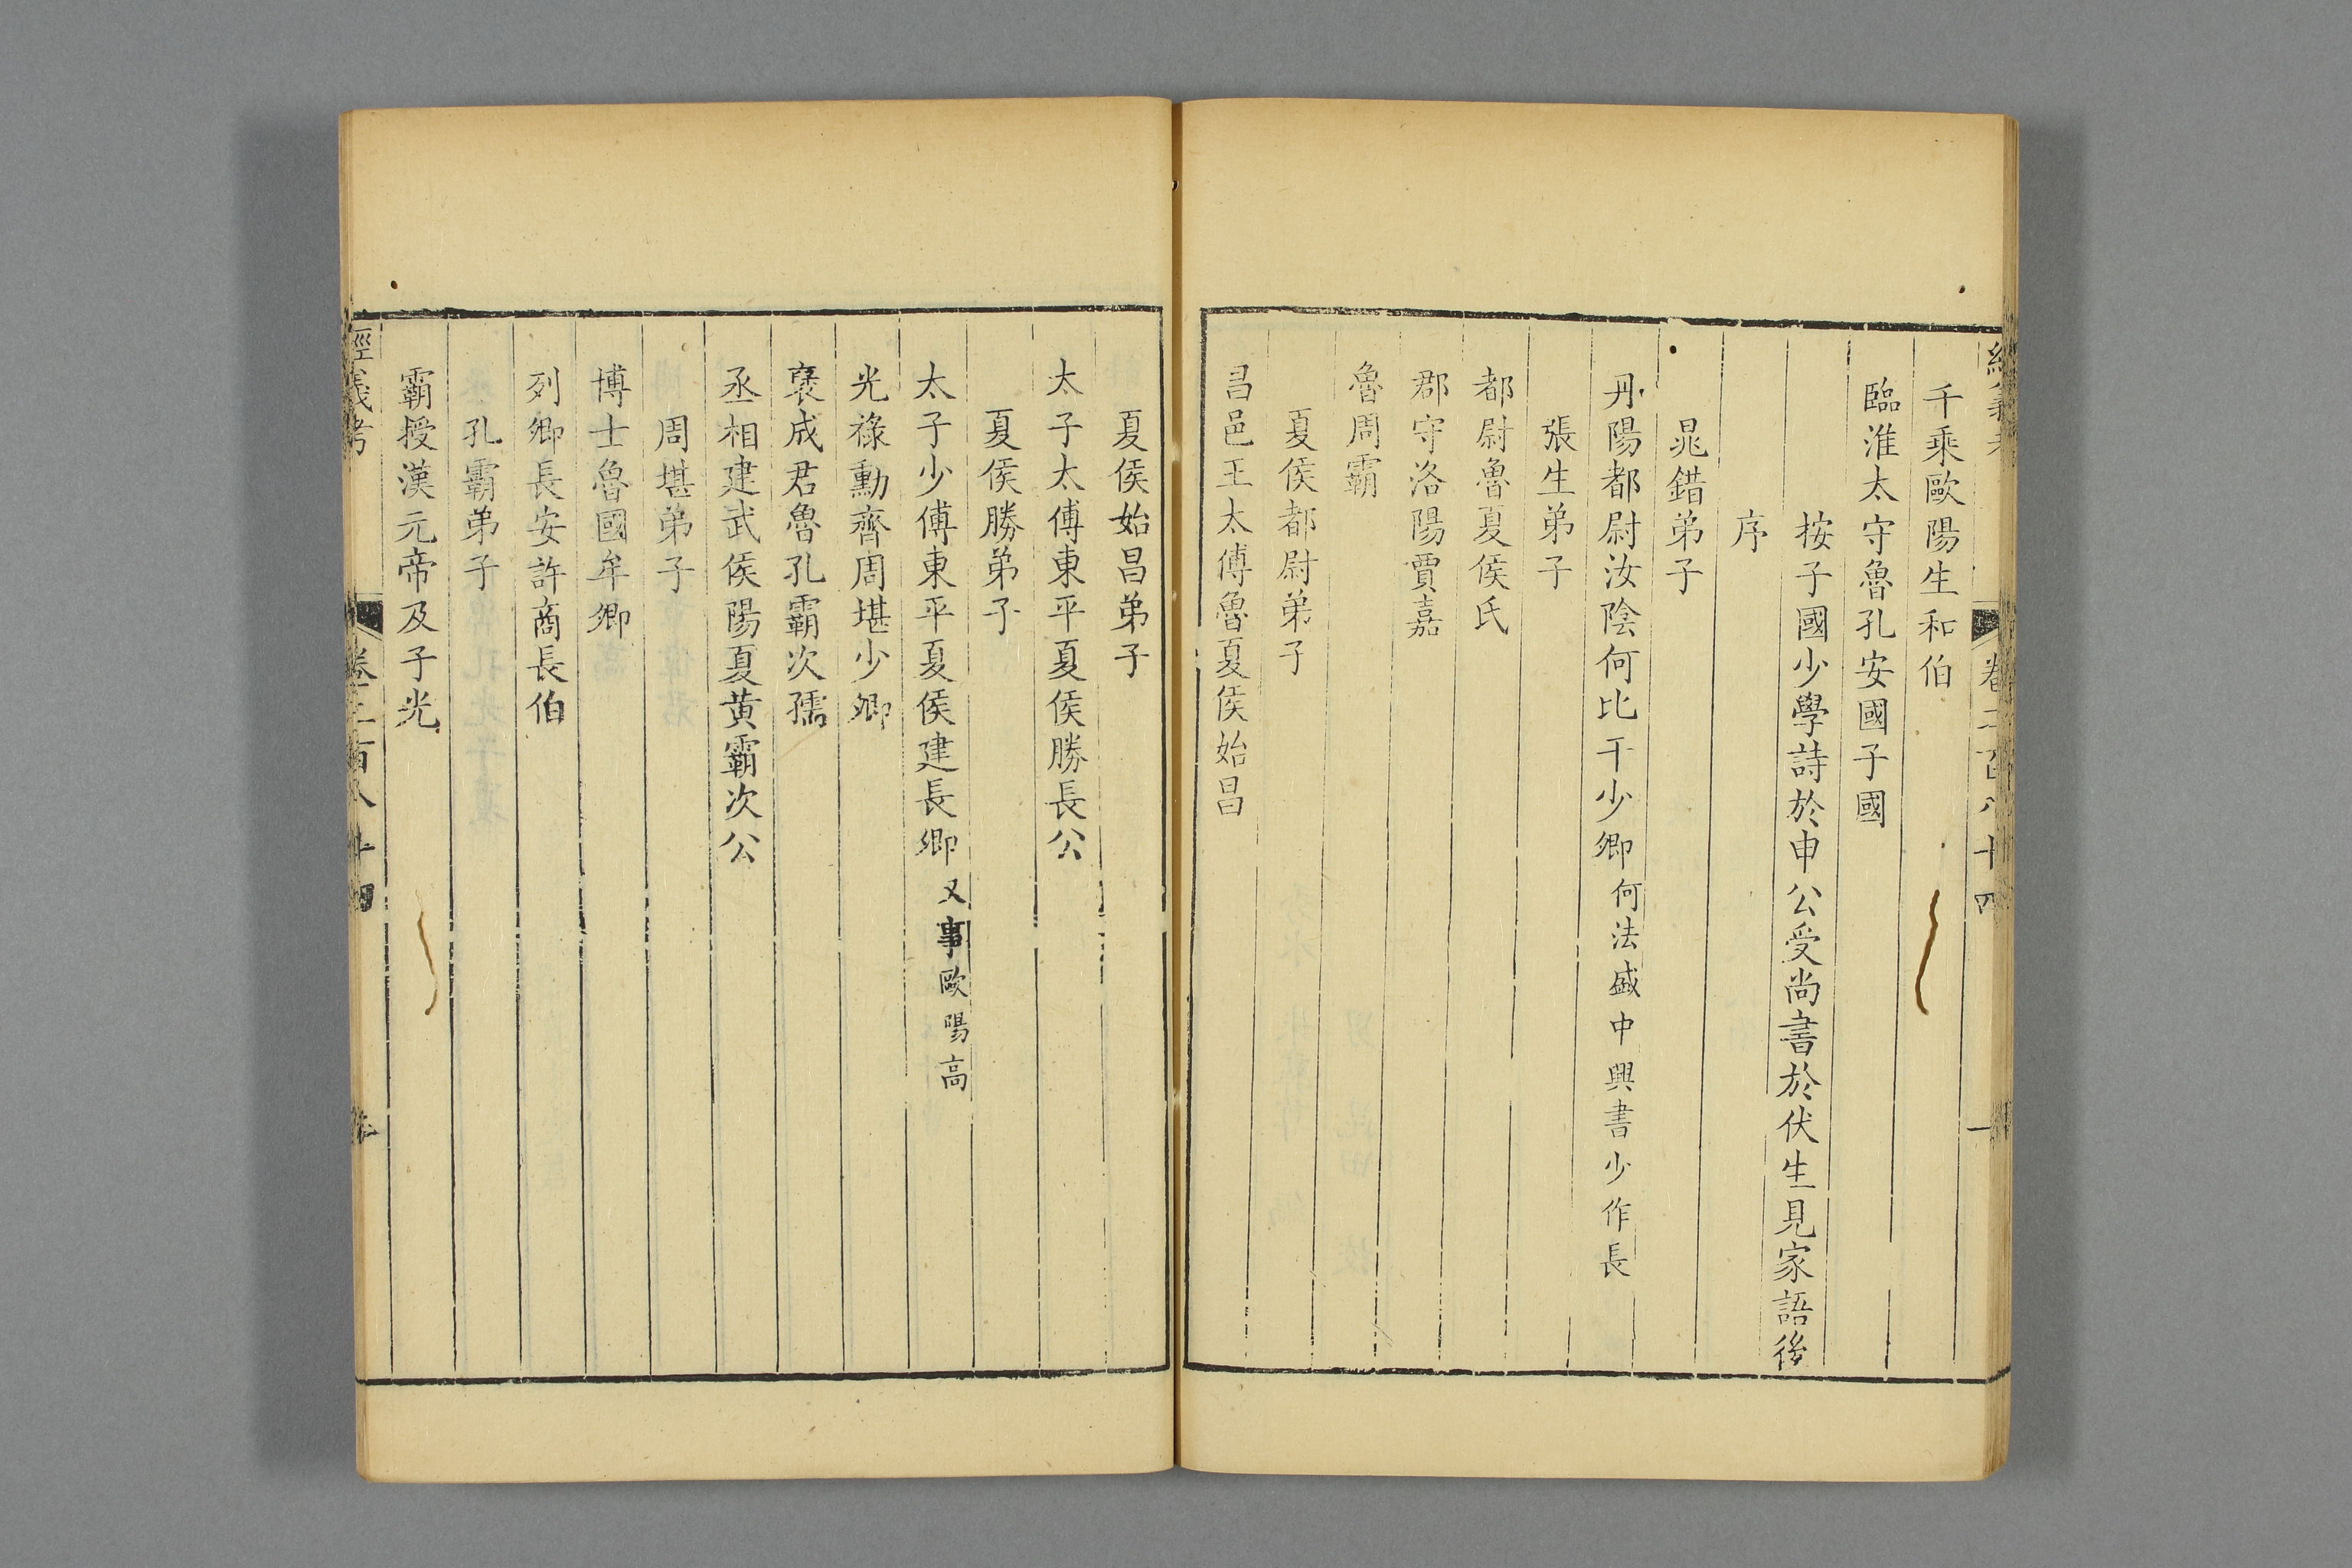 千乘歐陽生和伯
臨淮太守魯孔安國子國
按子國少學詩於申公受尚書於伏生見家語後
序
鼂錯弟子
丹陽都尉汝陰何比干少卿何法盛中興書少作長
張生弟子
都尉魯夏侯氏
郡守洛陽賈嘉
魯周霸
夏侯都尉弟子
昌邑王太傅魯夏侯始昌
夏侯始昌弟子
太子太傅東平夏侯勝長公
夏侯勝弟子
太子少傅東平夏侯建長卿又事歐陽高
光祿勳齊周堪少卿
褒成君魯孔霸次孺
丞相建武侯陽夏黃霸次公
周堪弟子
博士魯國牟卿
列卿長安許商長伯
孔霸弟子
霸授漢元帝及子光
經義考 卷二百八十四